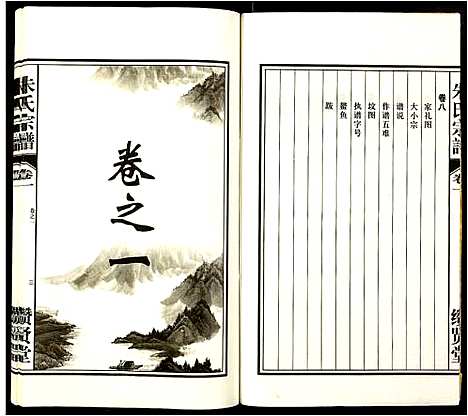 朱氏宗譜
卷一
續賢堂
卷八
家礼图
大小宗
谱说
作谱五难
坟图
执谱字号
鳌鱼
跋
卷之一
朱氏宗譜
卷一
卷之一
三
續賢堂